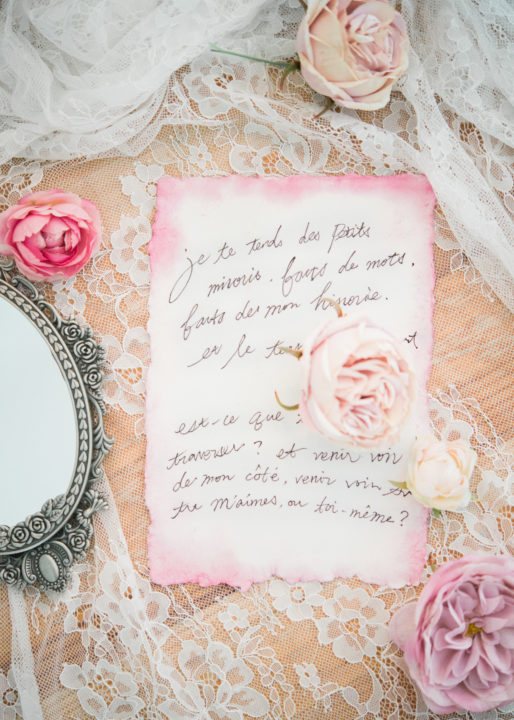 je te tends des petits
miroirs. faits de mots.
faits de mon histoire.
et le
est-ce que
traverser? et venir voir
de mon côté, venir voir
tu m'aimes, ou toi-même?